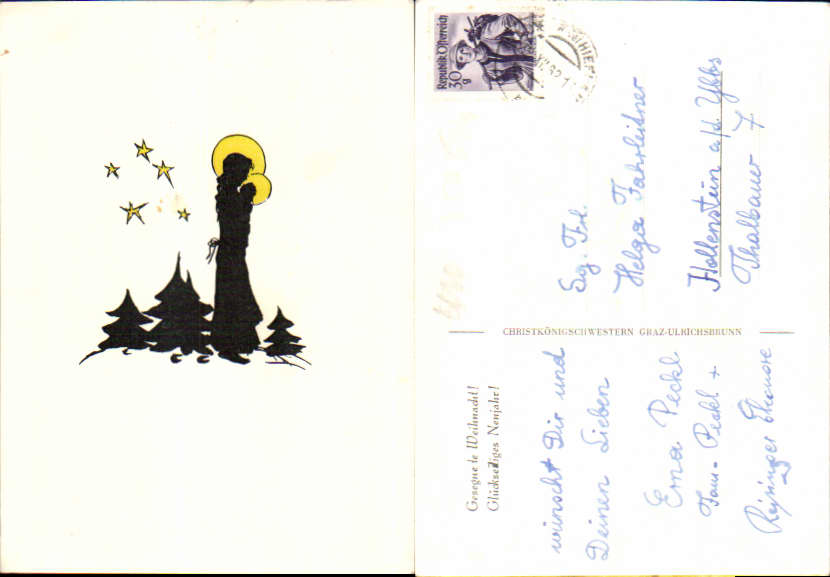 Republik Österreich
30 g
Sig. Frl.
Helga Fahrleitner
Hollenstein a/d Ybbs
Thalbauer 7
CHRISTKÖNIGSCHWESTERN GRAZ-ULRICHSBRUNN
Gesegnete Weihnacht!
Glückseliges Neujahr!
wünscht Dir und
Deinen Lieben
Erna Peckl
Fam. Peckl +
Reisinger Eleonore